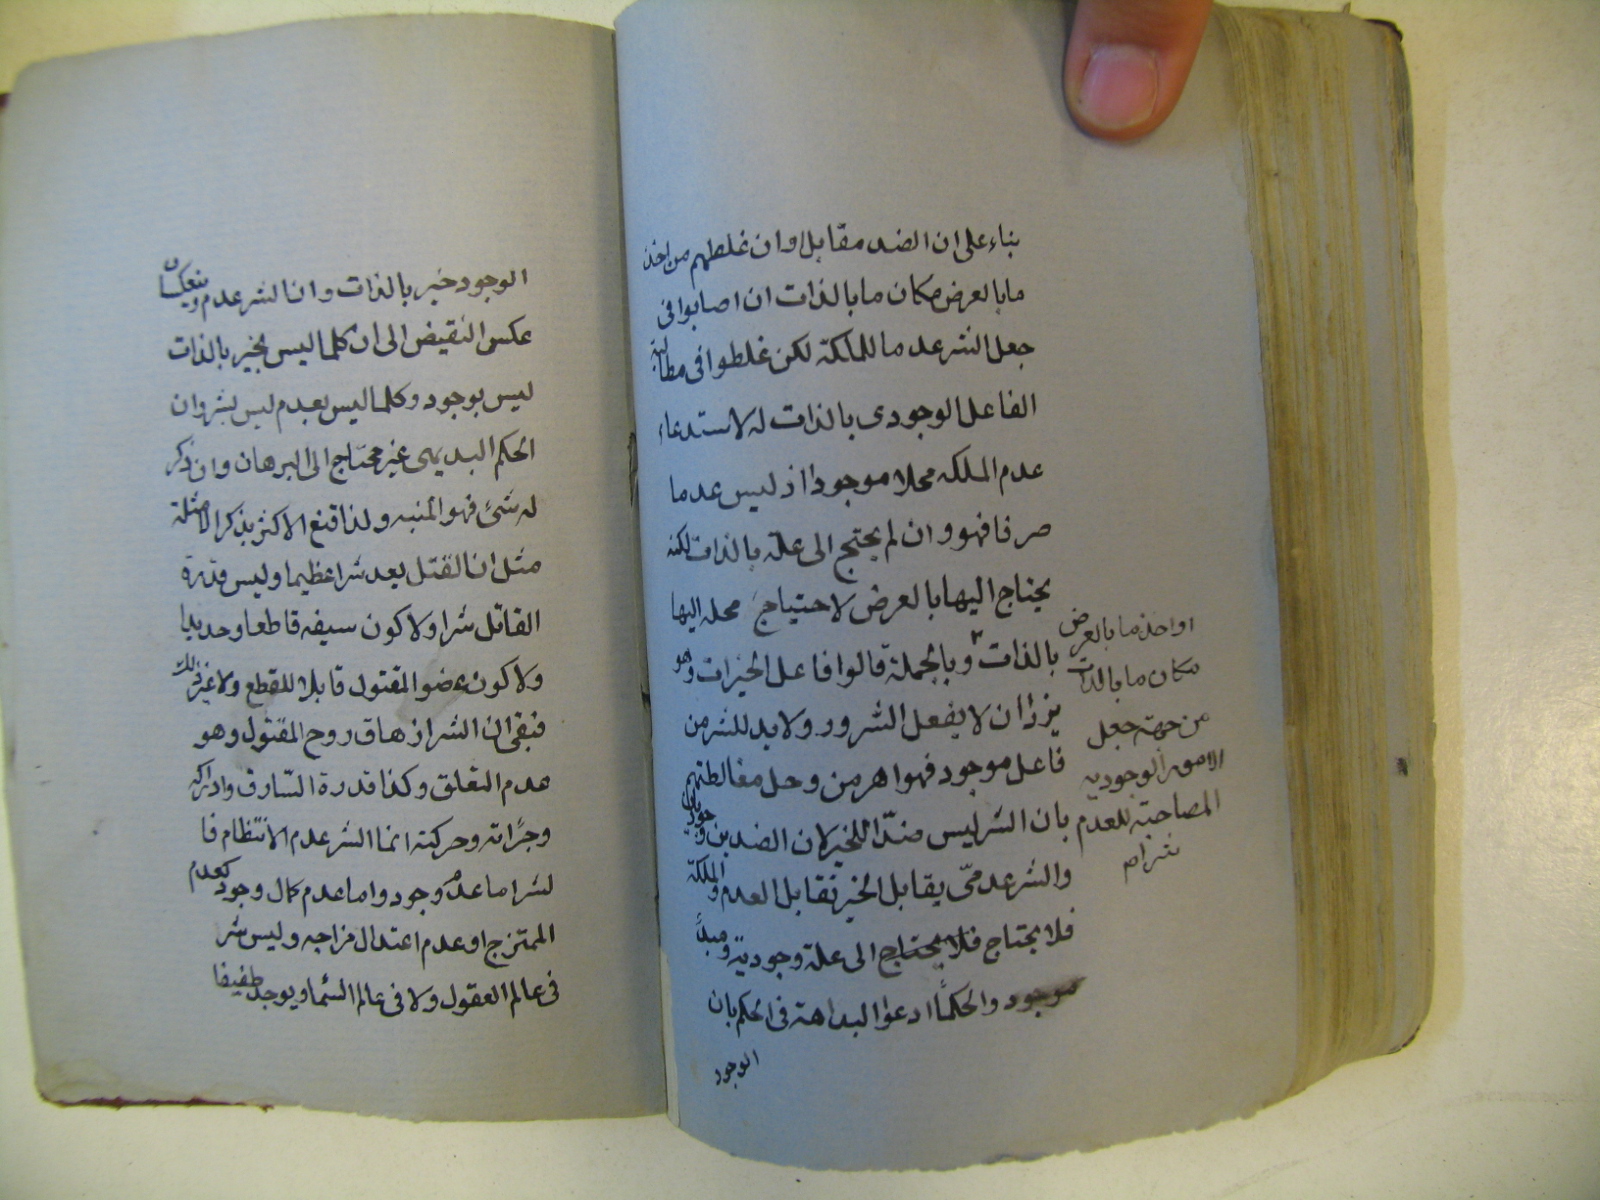 بناء على ان الضد مقابل وان غلطهم من اخذ
ما بالعرض مكان ما بالذات ان اصابوا فى
جعل الشر عدما للملكة لكن غلطوا فى مطالبة
الفاعل الوجودى بالذات له لاستدعاء
عدم الملكه محلا موجودا اذ ليس عدما
صرفا فهو وان لم يحتج الى علة بالذات لكنه
يحتاج اليها بالعرض لاحتياج محله اليها
بالذات ٢ وبالجملة قالوا فاعل الخيرات وهو
يزدان لا يفعل الشرور ولا بد للشر من
فاعل موجود فهو اهرمن وحل مغالطتهم
بان الشر ليس ضدّا للخير لان الضدين وجوديان
والشر عدمىّ يقابل الخير تقابل العدم والملكة
فلا يحتاج فلا يحتاج الى علة وجودية ومبدأ
موجود والحكمأ ادعوا البداهة فى الحكم بان
الوجود
او اخذ ما بالعرض
مكان ما بالذات
من جهة جعل
الامور الوجودية
المصاحبة للعدم
شرا م
الوجود خير بالذات وان الشر عدم وينعكسان
عكس النقيض الى ان كلما ليس بخير بالذات
ليس بوجود وكلما ليس بعدم ليس بشر وان
الحكم البديهى غير محتاج الى البرهان وان ذكر
له شئ فهو المنبه ولذا قنع الاكثر بذكر الامثلة
مثل ان القتل يعد شرا عظيما وليس قدرة
القاتل شرا ولا كون سيفه قاطعا وحديدا
ولا كون عضو المقتول قابلا للقطع ولا غير ذلك
فبقى ان الشر ازهاق روح المقتول وهو
عدم التعلق وكذا قدرة السّارق وادراكه
وجرّاته وحركته انما الشر عدم الانتظام فا
لشر اما عدم وجود واما عدم كمال وجود كعدم
الممتزج او عدم اعتدال مزاجه وليس شر
فى عالم العقول ولا فى عالم السّما ويوجد طفيفا